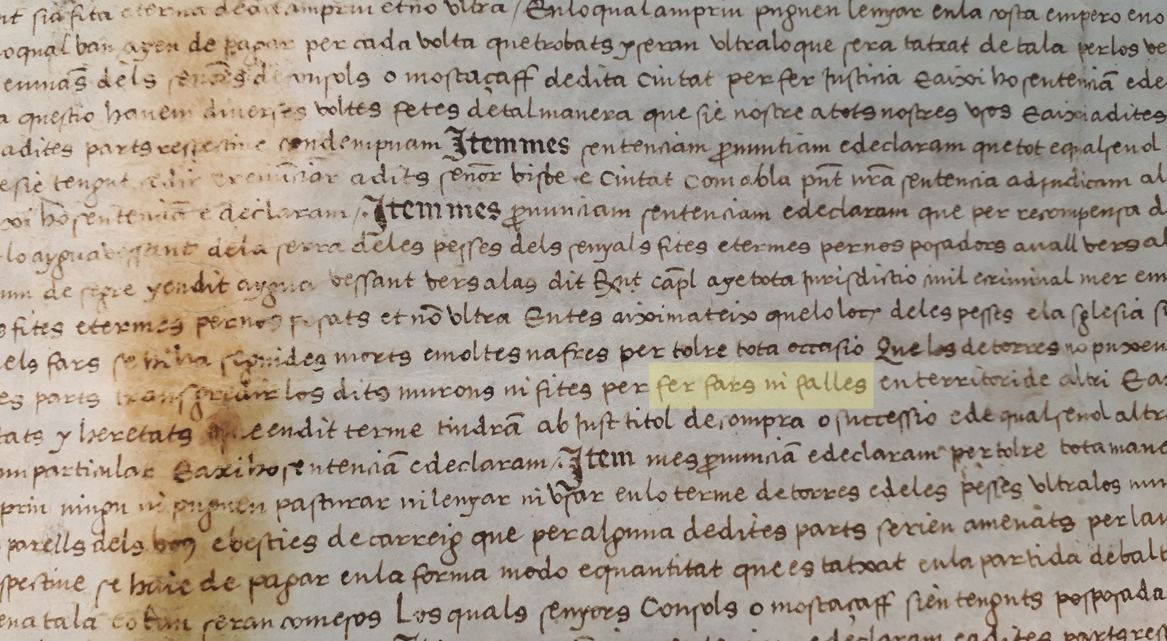 nt sia fita eterna de dit amprin et no ultra / En lo qual amprin puguen lenyar en la costa empero en o
o qual ban ayen de pagar per cada volta que trobats y seran ultra lo que sera tatxat de tala per los ve
dels señors de consols o mostaçaff de dita Ciutat per fer Justicia E aixi ho sentenciã e de
a questio havem diverses voltes fetes de tal manera que sie nostre a tots nostres vsos E aixi a dites
a dites parts respective condempnam Item mes sentenciam ꝓnuntiam e declaram que tot e qual seuol
e sie tengut cedir e renũciar a dits señor bisbe e Ciutat Com ab la pñt ñra sentencia adjudicam al
xi ho sentenciã e declaram / Item mes ꝓnunciam sentenciam e declaram que per recompensa d
lo aygua vessant de la serra de les pesses dels senyals fites e termes per nos posadors auall vers al
um de segre y en dit aygua vessant vers alas dit Rnt capl aye tota Jurisdictio ciuil e criminal mer em
s fites e termes per nos posats et nõ vltra Entes aixi mateix que lo loc de les pesses e la sglesia si
els fars se hi ha seguides morts e moltes nafres per tolre tota occasio Que los de torres no puxen
es parts transgredir los dits murons ni fites per fer fars ni falles en territori de altri E a
tats y heretats que en dit terme tindrã ab Just titol de compra o successio e de qual seuol altr
om particular E axi ho sentenciã e declaram / Item mes ꝓnunciã e declaram per tolre tota mane
prin ningu ni puguen pasturar ni lenyar ni vsar en lo terme de torres e de les pesses vltra los mur
parells dels bous e besties de carreig que per alguna de dites parts serien amenats per lau
spectiue se haie de pagar en la forma modo e quantitat que es tatxat en la partida de balt
ena tala co ban seran comesos Los quals senyors Consols o mostaçaff sien tenguts posposada